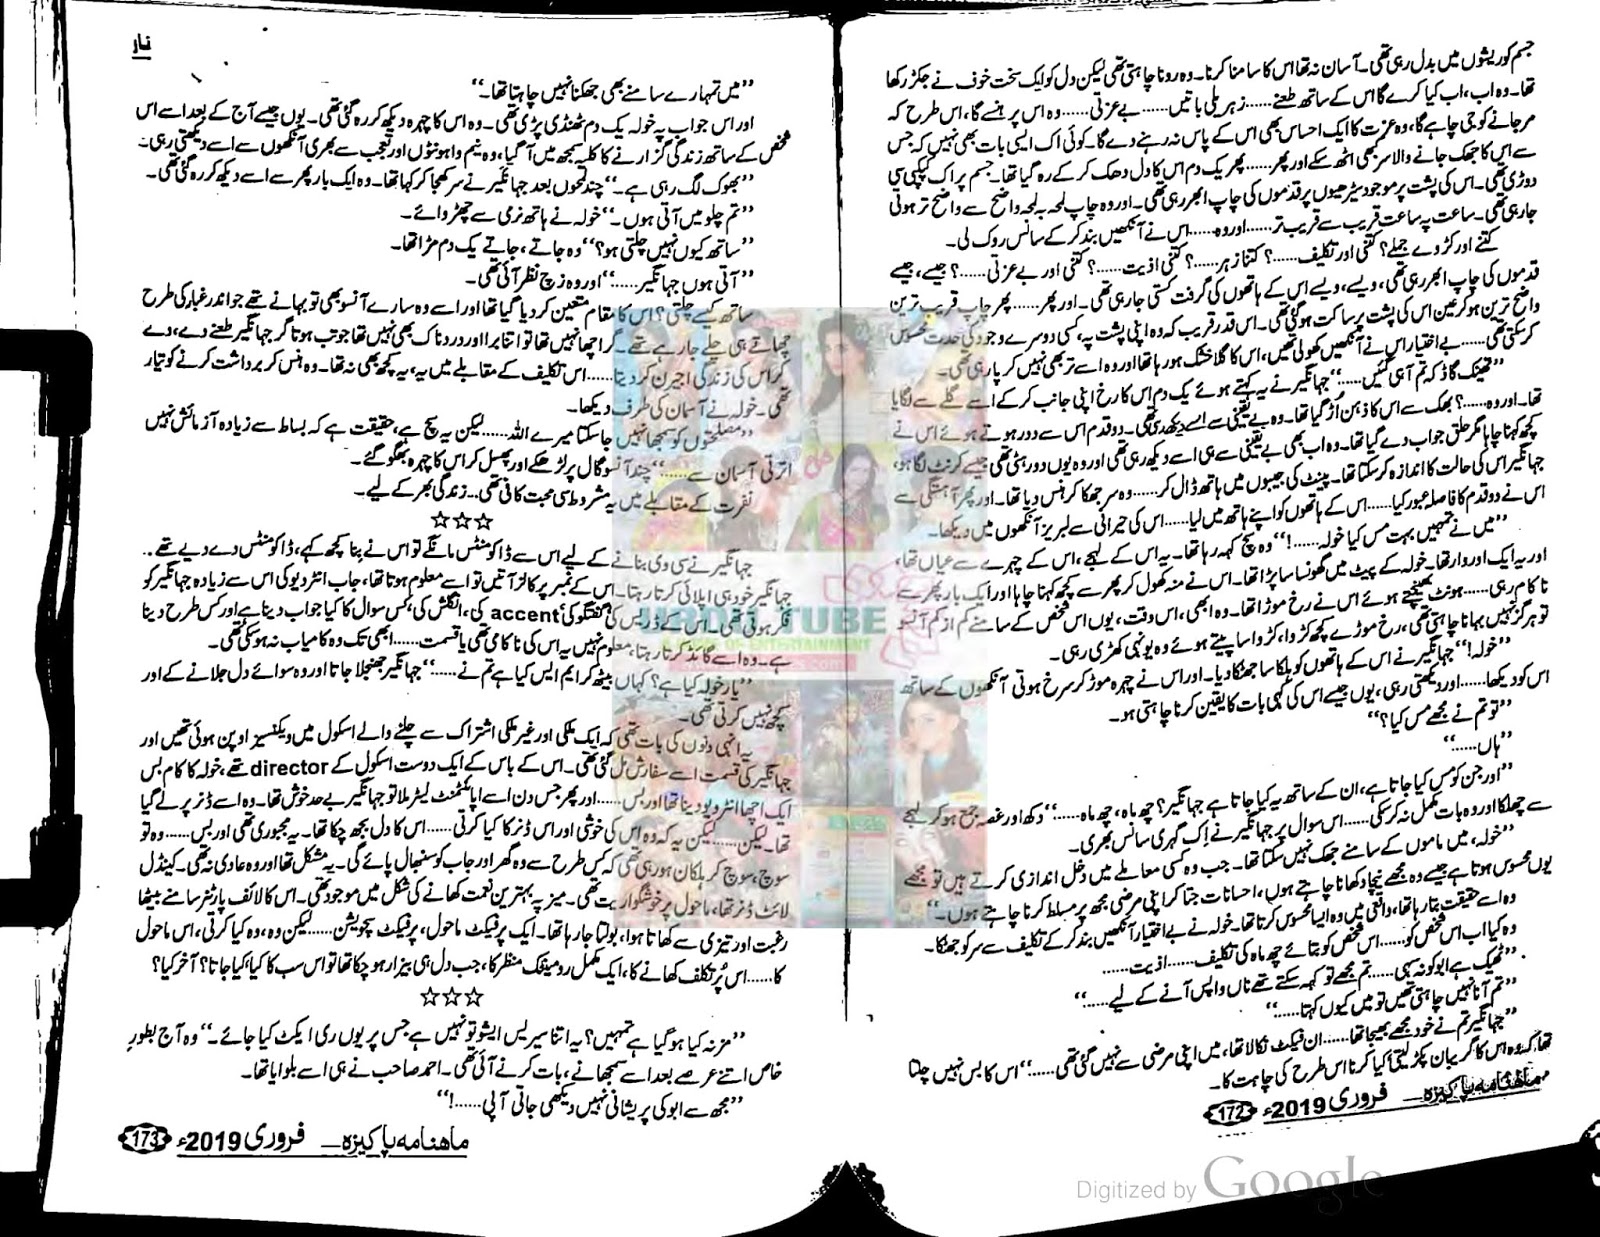 جسم کو ریشوں میں بدل رہی تھی۔ آسان نہ تھا اس کا سامنا کرنا۔ وہ رونا چاہتی تھی لیکن دل کو ایک سخت خوف نے جکڑ رکھا
تھا۔ وہ اب، اب کیا کرے گا اس کے ساتھ طعنے...... زہریلی باتیں...... بے عزتی...... وہ اس پر ہنسے گا، اس طرح کہ
مر جانے کو جی چاہے گا، وہ عزت کا ایک احساس بھی اس کے پاس نہ رہنے دے گا۔ کوئی اک ایسی بات بھی نہیں کہ جس
سے اس کا جھک جانے والا سر بھی اٹھ سکے اور پھر...... پھر یک دم اس کا دل دھک کر کے رہ گیا تھا۔ جسم پر اک کپکپی سی
دوڑی تھی۔ اس کی پشت پر موجود سیڑھیوں پر قدموں کی چاپ ابھر رہی تھی۔ اور وہ چاپ لمحہ بہ لمحہ واضح سے واضح تر ہوتی
جا رہی تھی۔ ساعت بہ ساعت قریب سے قریب تر...... اور وہ...... اس نے آنکھیں بند کر کے سانس روک لی۔
کتنے اور کڑوے جملے؟ کتنی اور تکلیف......؟ کتنا زہر......؟ کتنی اذیت......؟ کتنی اور بے عزتی......؟ جیسے، جیسے
قدموں کی چاپ ابھر رہی تھی، ویسے، ویسے اس کے ہاتھوں کی گرفت کستی جا رہی تھی۔ اور پھر...... پھر چاپ قریب ترین
واضح ترین ہو کر عین اس کی پشت پر ساکت ہو گئی تھی۔ اس قدر قریب کہ وہ اپنی پشت پہ، کسی دوسرے وجود کی حدت محسوس
کر سکتی تھی...... بے اختیار اس نے آنکھیں کھولی تھیں، اس کا گلا خشک ہو رہا تھا اور وہ اسے تر بھی نہیں کر پا رہی تھی۔
”تھینک گاڈ کہ تم آ ہی گئیں......“ جہانگیر نے یہ کہتے ہوئے یک دم اس کا رخ اپنی جانب کر کے اسے گلے سے لگایا
تھا۔ اور وہ......؟ بھک سے اس کا ذہن اڑ گیا تھا۔ وہ بے یقینی سے اسے دیکھ رہی تھی۔ دو قدم اس سے دور ہوتے ہوئے اس نے
کچھ کہنا چاہا مگر حلق جواب دے گیا تھا۔ وہ اب بھی بے یقینی سے ہی اسے دیکھ رہی تھی اور وہ یوں دور ہٹی تھی جیسے کرنٹ لگا ہو،
جہانگیر اس کی حالت کا اندازہ کر سکتا تھا۔ پینٹ کی جیبوں میں ہاتھ ڈال کر...... وہ سر جھکا کر ہنس دیا تھا۔ اور پھر آہستگی سے
اس نے دو قدم کا فاصلہ عبور کیا...... اس کے ہاتھوں کو اپنے ہاتھ میں لیا...... اس کی حیرانی سے لبریز آنکھوں میں دیکھا۔
”میں نے تمہیں بہت مس کیا خولہ......!“ وہ سچ کہہ رہا تھا۔ یہ اس کے لہجے، اس کے چہرے سے عیاں تھا،
اور یہ ایک اور وار تھا۔ خولہ کے پیٹ میں گھونسا سا پڑا تھا۔ اس نے منہ کھول کر پھر سے کچھ کہنا چاہا اور ایک بار پھر سے
ناکام رہی...... ہونٹ بھینچتے ہوئے اس نے رخ موڑا تھا۔ وہ ابھی، اس وقت، یوں اس شخص کے سامنے کم از کم آنسو
تو ہرگز نہیں بہانا چاہتی تھی، رخ موڑے کچھ کڑوا، کڑوا سا پیتے ہوئے وہ یونہی کھڑی رہی۔
”خولہ!“ جہانگیر نے اس کے ہاتھوں کو ہلکا سا جھٹکا دیا۔ اور اس نے چہرہ موڑ کر سرخ ہوتی آنکھوں کے ساتھ
اس کو دیکھا...... اور دیکھتی رہی، یوں جیسے اس کی کہی بات کا یقین کرنا چاہتی ہو۔
”تو تم نے مجھے مس کیا؟“
”ہاں......“
”اور جن کو مس کیا جاتا ہے، ان کے ساتھ یہ کیا جاتا ہے جہانگیر؟ چھ ماہ، چھ ماہ......“ دکھ اور غصہ جمع ہو کر لہجے
سے چھلکا اور وہ بات مکمل نہ کر سکی...... اس سوال پر جہانگیر نے اِک گہری سانس بھری۔
”خولہ، میں ماموں کے سامنے جھک نہیں سکتا تھا۔ جب وہ کسی معاملے میں دخل اندازی کرتے ہیں تو مجھے
یوں محسوس ہوتا ہے جیسے وہ مجھے نیچا دکھانا چاہتے ہوں، احسانات جتا کر اپنی مرضی مجھ پر مسلط کرنا چاہتے ہوں۔“
وہ اسے حقیقت بتا رہا تھا، واقعی میں وہ ایسا محسوس کرتا تھا۔ خولہ نے بے اختیار آنکھیں بند کر کے تکلیف سے سر کو جھٹکا۔
وہ کیا اب اس شخص کو...... اس شخص کو بتائے چھ ماہ کی تکلیف...... اذیت......
”ٹھیک ہے ابو کو نہ سہی...... تم مجھے تو کہہ سکتے تھے ناں واپس آنے کے لیے......“
”تم آنا نہیں چاہتی تھیں تو میں کیوں کہتا......“
”جہانگیر تم نے خود مجھے بھیجا تھا...... ان فیکٹ نکالا تھا، میں اپنی مرضی سے نہیں گئی تھی......“ اس کا بس نہیں چلتا
تھا کہ وہ اس کا گریبان پکڑ لیتی کیا کرنا اس طرح کی چاہت کا۔
ماہنامہ پاکیزہ — فروری 2019ء 172
نار
”میں تمہارے سامنے بھی جھکنا نہیں چاہتا تھا۔“
اور اس جواب پہ خولہ یک دم ٹھنڈی پڑی تھی۔ وہ اس کا چہرہ دیکھ کر رہ گئی تھی۔ یوں جیسے آج کے بعد اسے اس
شخص کے ساتھ زندگی گزارنے کا کلیہ سمجھ میں آ گیا، وہ نیم وا ہونٹوں اور تعجب سے بھری آنکھوں سے اسے دیکھتی رہی۔
”بھوک لگ رہی ہے۔“ چند لمحوں بعد جہانگیر نے سر کھجا کر کہا تھا۔ وہ ایک بار پھر سے اسے دیکھ کر رہ گئی تھی۔
”تم چلو میں آتی ہوں۔“ خولہ نے ہاتھ نرمی سے چھڑوائے۔
”ساتھ کیوں نہیں چلتی ہو؟“ وہ جاتے، جاتے یک دم مڑا تھا۔
”آتی ہوں جہانگیر......“ اور وہ زچ نظر آئی تھی۔
ساتھ کیسے چلتی؟ اس کا مقام متعین کر دیا گیا تھا اور اسے وہ سارے آنسو بھی تو بہانے تھے جو اندر غبار کی طرح
چھاتے ہی چلے جا رہے تھے۔ گر اچھا نہیں تھا تو اتنا برا اور دردناک بھی نہیں تھا جو تب ہوتا گر جہانگیر طعنے دے، دے
کر اس کی زندگی اجیرن کر دیتا...... اس تکلیف کے مقابلے میں یہ، یہ کچھ بھی نہ تھا۔ وہ ہنس کر برداشت کرنے کو تیار
تھی۔ خولہ نے آسمان کی طرف دیکھا۔
”مصلحتوں کو سمجھا نہیں جا سکتا میرے اللہ...... لیکن یہ سچ ہے، حقیقت ہے کہ بساط سے زیادہ آزمائش نہیں
اترتی آسمان سے......“ چند آنسو گال پر لڑھکے اور پھسل کر اس کا چہرہ بھگو گئے۔
نفرت کے مقابلے میں یہ مشروط سی محبت کافی تھی... زندگی بھر کے لیے۔
☆☆☆
جہانگیر نے سی وی بنانے کے لیے اس سے ڈاکومنٹس مانگے تو اس نے بِنا کچھ کہے، ڈاکومنٹس دے دیے تھے۔
جہانگیر خود ہی اپلائی کرتا رہتا۔ اس کے نمبر پر کالز آتیں تو اسے معلوم ہوتا تھا، جاب انٹرویو کی اس سے زیادہ جہانگیر کو
فکر ہوتی تھی۔ اس کے ڈریس کی، گفتگو کی accent کی، انگلش کی، کس سوال کا کیا جواب دینا ہے اور کس طرح دینا
ہے۔ وہ اسے گائڈ کرتا رہتا، معلوم نہیں یہ اس کی ناکامی تھی یا قسمت...... ابھی تک وہ کامیاب نہ ہو سکی تھی۔
”یار خولہ کیا ہے؟ کہاں بیٹھ کر ایم ایس کیا ہے تم نے......“ جہانگیر جھنجلا جاتا اور وہ سوائے دل جلانے کے اور
کچھ نہیں کرتی تھی۔
یہ انہی دنوں کی بات تھی کہ ایک ملکی اور غیر ملکی اشتراک سے چلنے والے اسکول میں ویکنسیز اوپن ہوئی تھیں اور
جہانگیر کی قسمت اسے سفارش مل گئی تھی۔ اس کے باس کے ایک دوست اسکول کے director تھے، خولہ کا کام بس
ایک اچھا انٹرویو دینا تھا اور بس...... اور پھر جس دن اسے اپائنٹمنٹ لیٹر ملا تو جہانگیر بے حد خوش تھا۔ وہ اسے ڈنر پر لے گیا
تھا۔ لیکن...... لیکن یہ کہ وہ اس کی خوشی اور اس ڈنر کا کیا کرتی...... اس کا دل بجھ چکا تھا۔ یہ مجبوری تھی اور بس...... وہ تو
سوچ، سوچ کر ہلکان ہو رہی تھی کہ کس طرح سے وہ گھر اور جاب کو سنبھال پائے گی۔ یہ مشکل تھا اور وہ عادی نہ تھی۔ کینڈل
لائٹ ڈنر تھا، ماحول پر خوشگواریت تھی۔ میز پہ بہترین نعمت کھانے کی شکل میں موجود تھی۔ اس کا لائف پارٹنر سامنے بیٹھا
رغبت اور تیزی سے کھاتا ہوا، بولتا جا رہا تھا۔ ایک پرفیکٹ ماحول، پرفیکٹ سچویشن...... لیکن وہ، وہ کیا کرتی، اس ماحول
کا...... اس پُر تکلف کھانے کا، ایک مکمل رومینٹک منظر کا، جب دل ہی بیزار ہو چکا تھا تو اس سب کا کیا، کیا جاتا؟ آخر کیا؟
☆☆☆
”مزنہ کیا ہو گیا ہے تمہیں؟ یہ اتنا سیریس ایشو تو نہیں ہے جس پر یوں ری ایکٹ کیا جائے۔“ وہ آج بطورِ
خاص اتنے عرصے بعد اسے سمجھانے، بات کرنے آئی تھی۔ احمد صاحب نے ہی اسے بلوایا تھا۔
”مجھ سے ابو کی پریشانی نہیں دیکھی جاتی آپی......!“
ماہنامہ پاکیزہ — فروری 2019ء 173
URDU TUBE
Digitized by Google